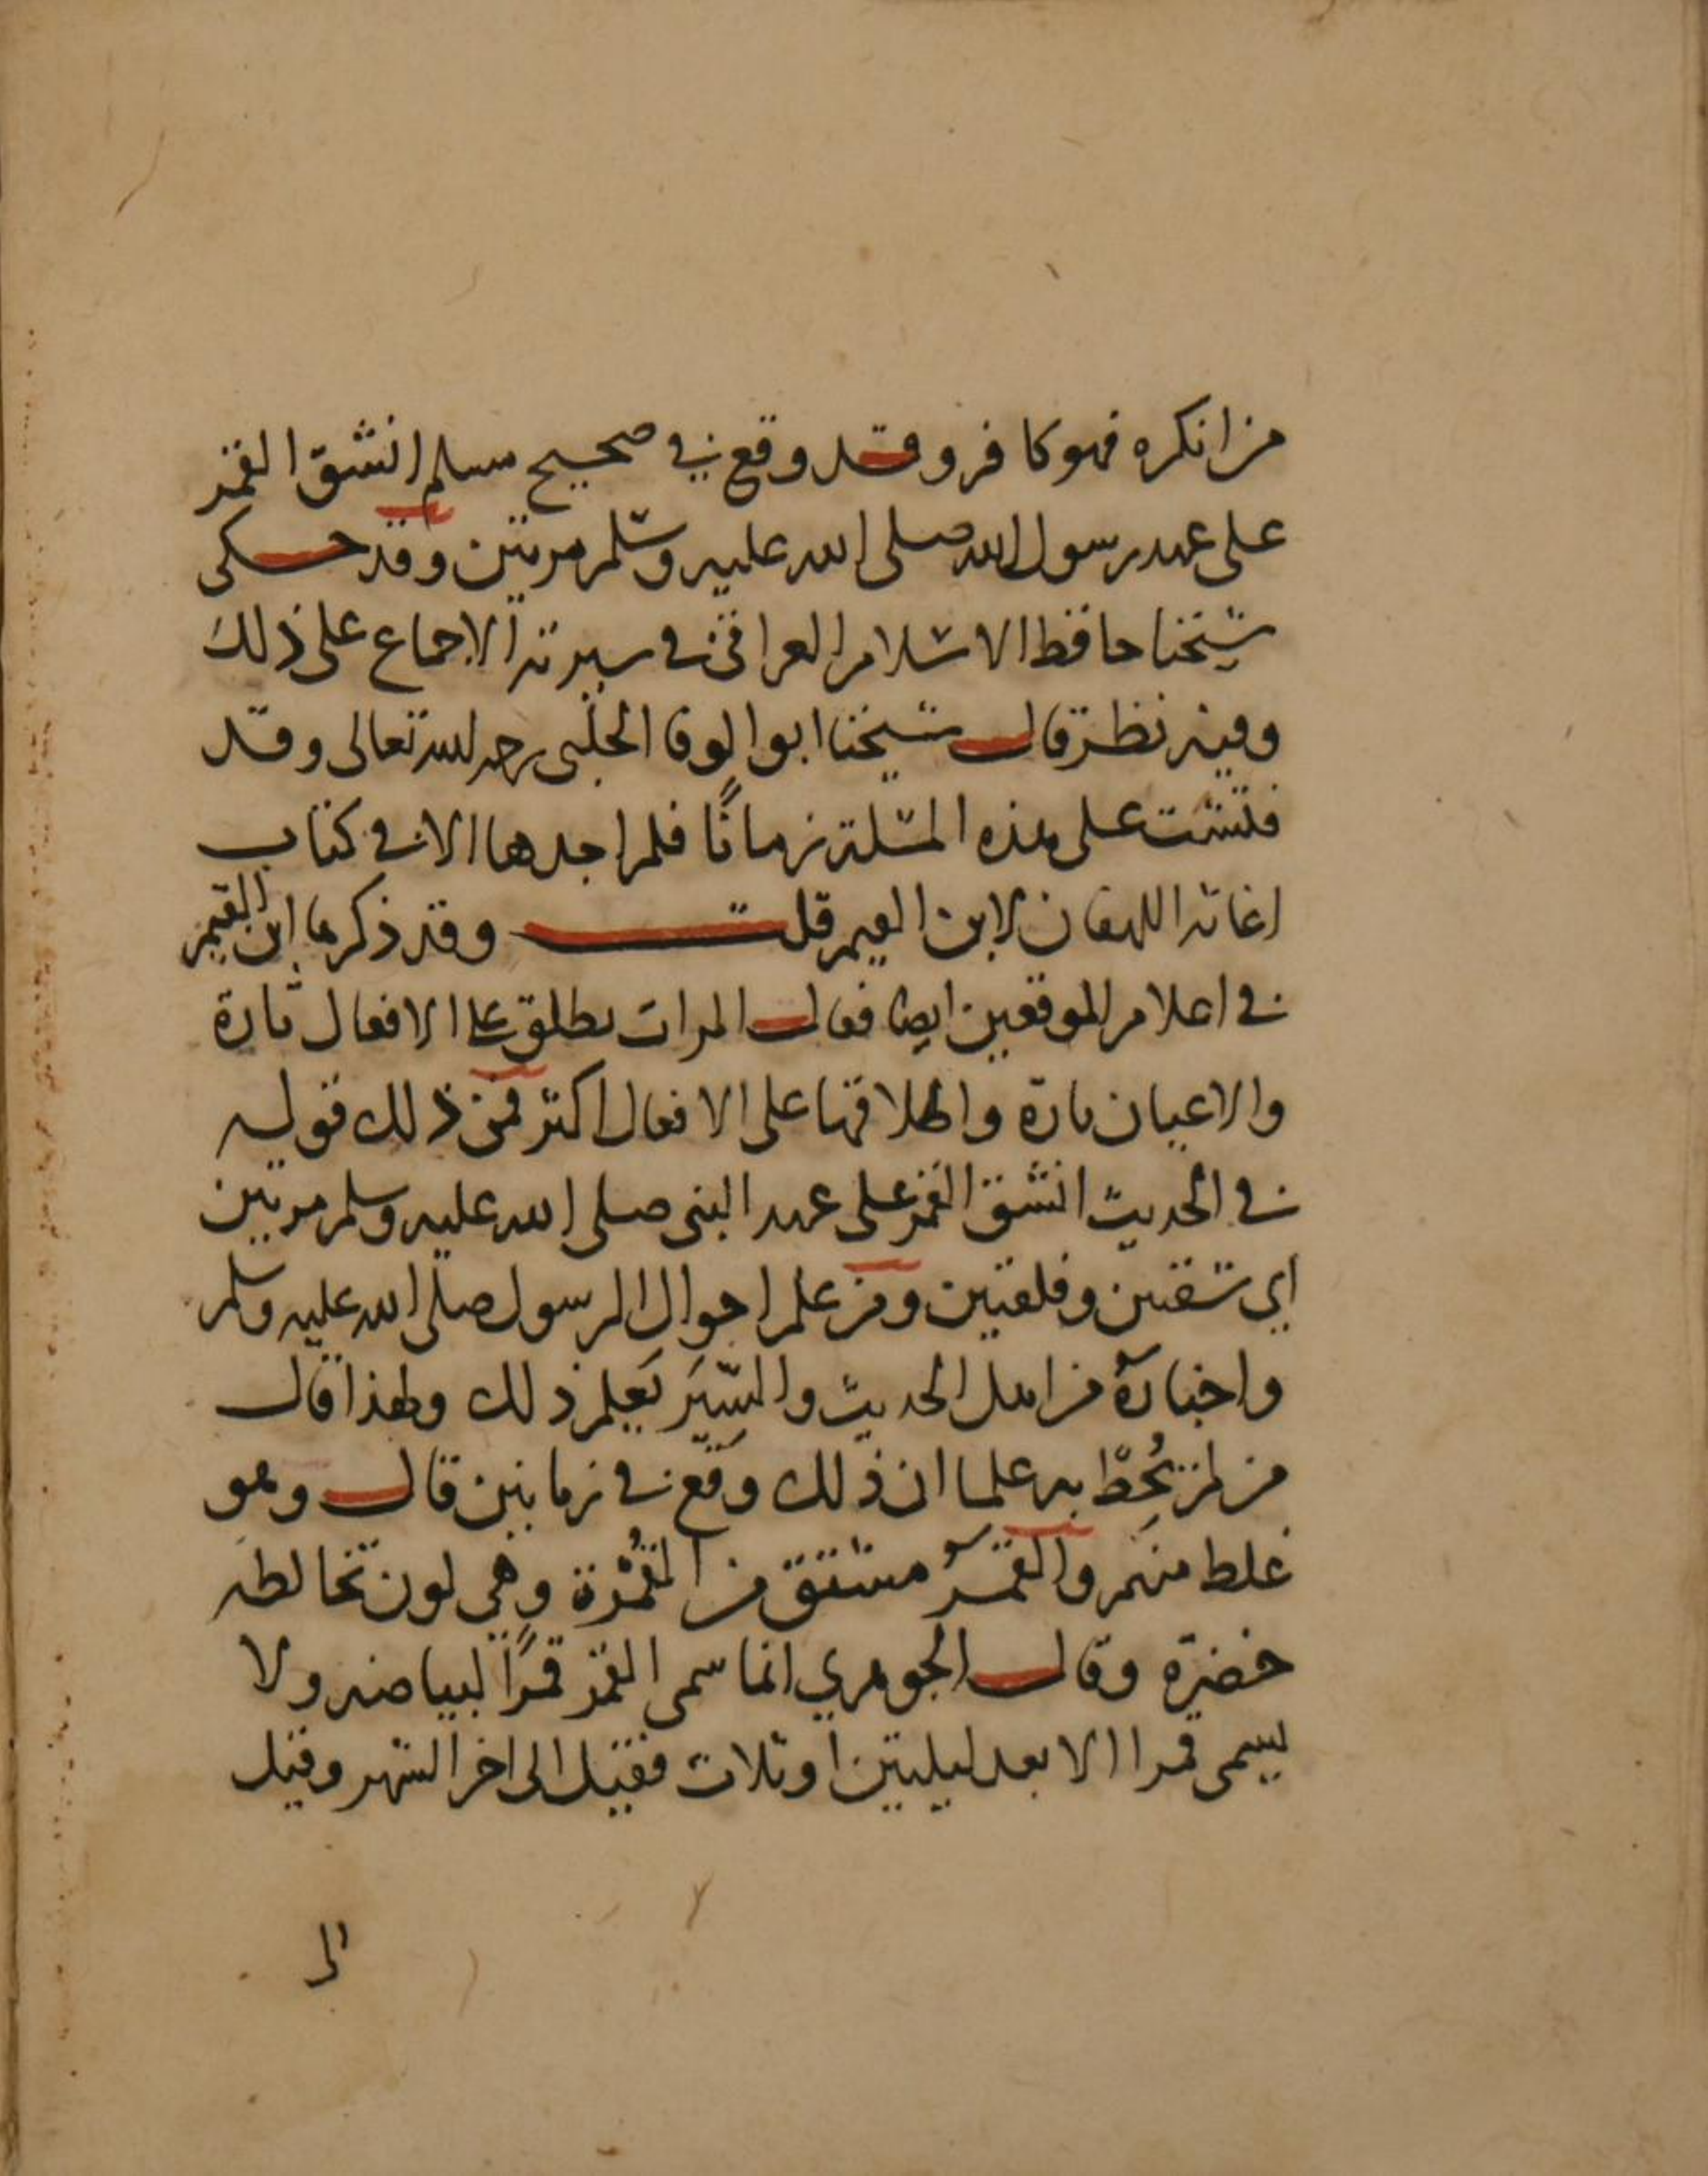 من انكره فهو كافر وقد وقع في صحيح مسلم انشق القمر
على عهد رسول الله صلى الله عليه وسلم مرتين وقد حكى
شيخنا حافظ الاسلام العراقي في سيرته الاجماع على ذلك
وفيه نظر قال شيخنا ابو الوفا الحلبي رحمه الله تعالى وقد
فتشت على هذه المسئلة زمانًا فلم اجدها الا في كتاب
اغاثه اللهفان لابن القيم قلت وقد ذكرها ابن القيم
في اعلام الموقعين ايضا فقال المرات يطلق على الافعال تارة
والاعيان تارة واطلاقها على الافعال اكثر فمن ذلك قوله
في الحديث انشق القمر على عهد النبي صلى الله عليه وسلم مرتين
اي شقتين وفلقتين ومن علم احوال الرسول صلى الله عليه وسلم
واخباره من اهل الحديث والسِّيَر يَعلم ذلك ولهذا قال
من لم يُحِط به علما ان ذلك وقع في زمانين قال وهو
غلط منهم والقمر مشتق من القُمْرة وهي لون تخالطه
خضرة وقال الجوهري انما سمى القمر قمرًا لبياضه ولا
يسمى قمرا الا بعد ليليتين او ثلاث فقيل الى اخر الشهر وقيل
الى